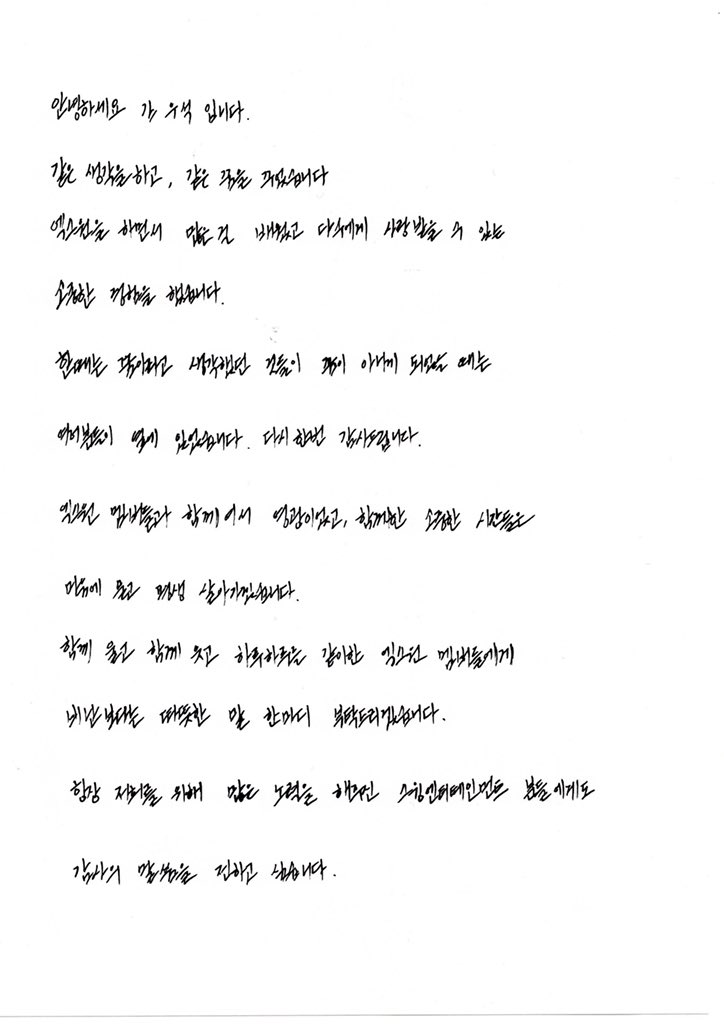 안녕하세요 김우석 입니다.
같은 생각을하고, 같은 꿈을 꾸었습니다
엑스원을 하면서 많은걸 배웠고 다수에게 사랑받을 수 있는
소중한 경험을 했습니다.
한때는 꿈이라고 생각했던 것들이 꿈이 아니게 되었을 때는
여러분들이 옆에 있었습니다. 다시한번 감사드립니다.
엑스원 멤버들과 함께여서 영광이었고, 함께한 소중한 시간들은
마음에 안고 평생 살아가겠습니다.
함께 울고 함께 웃고 하루하루를 같이한 엑스원 멤버들에게
비난보다는 따뜻한 말 한마디 부탁드리겠습니다.
항상 저희를 위해 많은 노력을 해주신 스윙엔터테인먼트 분들에게도
감사의 말씀을 전하고 싶습니다.